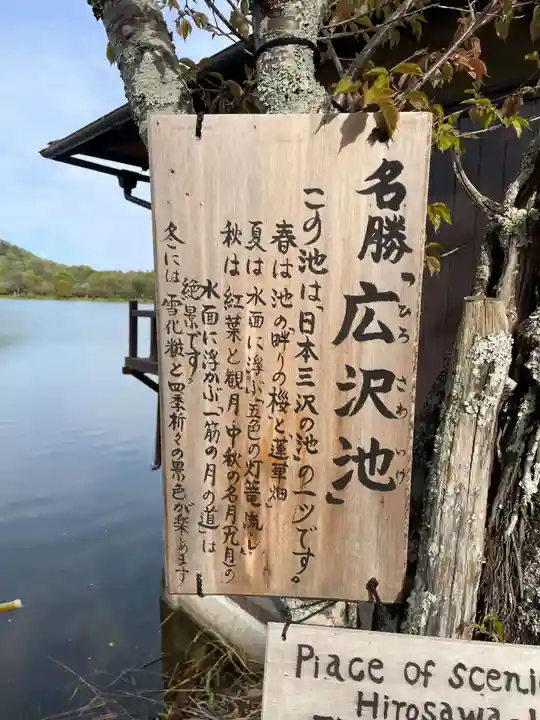 名勝「広沢池」
ひろ さわ いけ
この池は、「日本三沢の池」の一ツです。
春は池の畔りの桜と「蓮華畑」
夏は水面に浮ぶ「五色の灯篭流し」
秋は紅葉と観月・中秋の名月(九月)の
水面に浮かぶ「一筋の月の道」は
絶景です。
冬には雪化粧と四季折々の景色が楽しめます
Place of scenic
Hirosawa